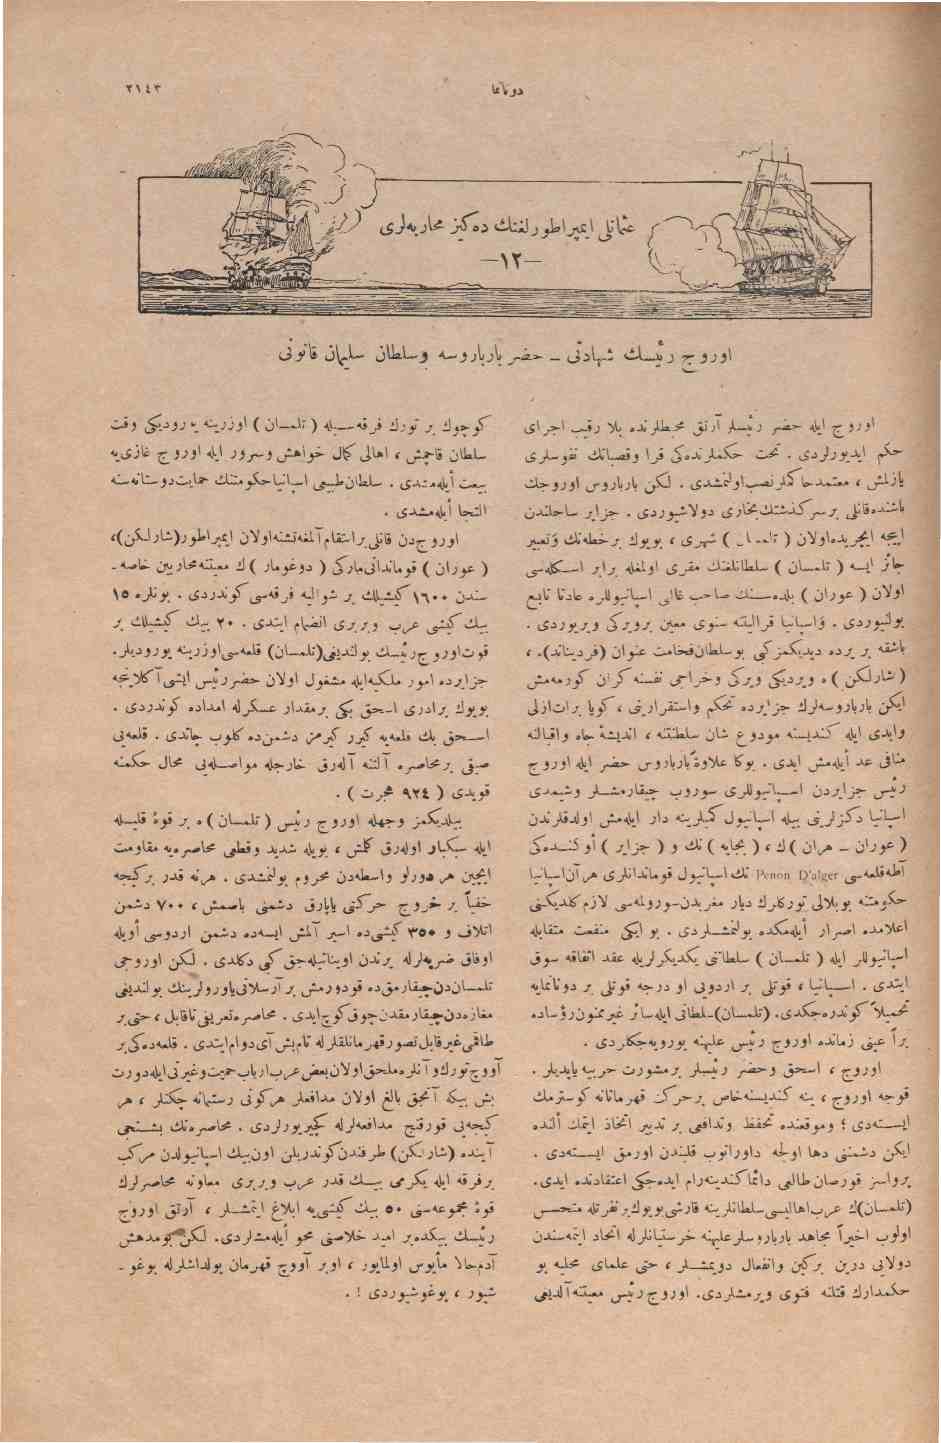 دوناnما
٢١٤٣
عثمانلی ایمپراطورلغنك ده‌كیز محاربه‌لری
—١٢—
اوروج رئیسك شهادتی ــ حضر بارباروسه وسلطان سلیمان قانونی
اوروج ایله حضر رئیسلر آرتق محیطلرنده بلا رقیب اجرای
حكم ایدیورلردی . تحت حكملرنده‌كی قرا وقصباتك نفوسلری
یازلمش ، معتمد حاكملر نصب اولنمشدی . لكن بارباروس اوروجك
باشنده قانلی برسركذشتك بخاری دولاشیوردی . جزایر ساحلندن
ایچه ایچریده اولان ( تلمسان ) شهری ، بویوك برخطه‌نك وتعبیر
جائز ایسه ( تلمسان ) سلطانلغنك مقری اولمغله برابر اسكله‌سی
اولان ( عوران ) بلده‌سنك صاحب غالی اسپانیوللره عادتا تابع
بولنیوردی . واسپانیا قرالیتنه سنوی معین برویركی ویریوردی .
باشقه بر یرده دیدیكمز كبی بوسلطان فخامت عنوان (فردیناند). ،
( شارلكن ) ه ویردیكی ویركی وخراجی نفسنه كران كورمه‌مش
ایكن بارباروسه‌لرك جزایرده تحكم واستقرارینی ، كویا برات ازلی
وابدی ایله كندیسنه مودوع شان سلطنتنه ، اندیشهٔ جاه واقبالنه
منافی عد أیله‌مش ایدی . بوكا علاوةً بارباروس حضر ایله اوروج
رئیس جزایردن اسپانیوللری سوروب چیقارمشلر وشیمدی
اسپانیا دكزلرینی بیله اسپانیول كمیلرینه دار ایله‌مش اولدقلرندن
( عوران ــ هران ) ك ، ( بجایه ) نك و ( جزایر ) أوكنده‌كی
آطه قلعه‌سی Penon D'alger نك اسپانیول قوماندانلری هر آن اسپانیا
حكومتنه بوبلالی توركلرك دیار مغربدن سورولمه‌سی لازم كلدیكنی
اعلامده اصرار أیله‌مكده بولنمشلردی . بو ایكی منفعت متقابله
اسپانیوللر ایله ( تلمسان ) سلطاننی یكدیكرلریله عقد اتفاقه سوق
ایتدی . اسپانیا ، قوتلی بر اردویی او درجه قوتلی بر دونانمایه
تحمیلاً كوندره‌جكدی . (تلمسان) سلطانی ایله سائر غیر ممنون رؤساده
براً عینی زمانده اوروج رئیس علیهنه یورویه‌جكلردی .
اوروج ، اسحق وحضر رئیسلر برمشورت حربیه یاپدیلر .
قوجه اوروج ، ینه كندیسنه خاص برحركت قهرمانانه كوسترمك
ایسته‌دی ؛ وموقعنده تحفظ وتدافعی بر تدبیر اتخاذ ایتمك ألنده
ایكن دشمننی دها اولجه داورانوب قلبندن اورمق ایسته‌دی .
پرواسز قورصان طالعی دائما كندینه رام ایده‌جكی اعتقادنده ایدی .
(تلمسان)ك عرب اهالیسی سلطانلرینه قارشی بویوك برنفرتله متحسس
اولوب اخیراً مجاهد بارباروسلر علیهنه خرستیانلرله اتحاد ایتمه‌سندن
دولایی درین بركین وانفعال دویمشلر ، حتی علمای محلیه بو
حكمدارك قتلنه فتوی ویرمشلردی. اوروج رئیس معیتنه آلدیغی
كوچوك بر تورك فرقه‌سیله ( تلمسان ) اوزرینه یورودیكی وقت
سلطان قاچمش ، اهالی كمال خواهش وسرور ایله اوروج غازی‌یه
بیعت أیله‌مشدی . سلطان طبیعی اسپانیا حكومتنك حمایت دوستانه‌سنه
التجا أیله‌مشدی .
اوروج‌دن قانلی برانتقام آلمغه تشنه اولان ایمپراطور(شارلكن)،
( عوران ) قوماندانی ماركی ( دوغومار ) ك معیتنه محاربین خاصه ــ
سندن ١٦٠٠ كیشیلك بر شوالیه فرقه‌سی كوندردی . بونلره ١٥
بیك كیشی عرب وبربری انضمام ایتدی . ٢٠ بیك كیشیلك بر
قوت اوروج رئیسك بولندیغی (تلمسان) قلعه‌سی اوزرینه یورودیلر.
جزایرده امور ملكیه ایله مشغول اولان حضر رئیس ایشی آكلاینجه
بویوك برادری اسحق بكی برمقدار عسكرله امداده كوندردی .
اسحق بك قلعه‌یه كیرر كیرمز دشمن‌ده كلوب چاتدی . قلعه‌یی
صیقی برمحاصره آلتنه آله‌رق خارجله مواصله‌یی محال حكمنه
قویدی ( ٩٢٤ هجرت ) .
بیلدیكمز وجهله اوروج رئیس ( تلمسان ) ه بر قوهٔ قلیله
ایله سبكبار اوله‌رق كلمش ، بویله شدید وقطعی محاصره‌یه مقاومت
ایچین هر دورلو واسطه‌دن محروم بولنمشدی . هرنه قدر بركیجه
خفیاً بر خروج حركتی یاپارق دشمنی باصمش ، ٧٠٠ دشمن
اتلاف و ٣٥٠ كیشی‌ده اسیر آلمش ایسه‌ده دشمن اردوسی أویله
اوفاق ضربه‌لرله یرندن اویناتیله‌جق كبی دكلدی . لكن اوروجی
تلمسان‌دن چیقارمق‌ده قودورمش بر آرسلانی یاورولرینك بولندیغی
مغاره‌دن چیقارمقدن چوق كوچ ایدی . محاصره تعریفی ناقابل ، حتی بر
طاقمی غیر قابل تصور قهرمانلقلرله تام بش آی دوام ایتدی . قلعه‌ده‌كی بر
آووچ تورك و آنلره ملحق اولان بعض عرب ارباب حمیت وغیرتی ایله دورت
بش بیكه آنجق بالغ اولان مدافعلر هركونی رستمانه جنكلر ، هر
كیجه‌یی قورقنج مدافعه‌لرله كچیریورلردی . محاصره‌نك بشنجی
آینده (شارلكن) طرفندن كوندریلن اون بیك اسپانیولدن مركب
برفرقه ایله یكرمی بیك قدر عرب وبربری معاونه محاصرلرك
قوهٔ مجموعه‌سنی ٥٠ بیك كیشی‌یه ابلاغ ایتمشلر ، آرتق اوروج
رئیسك بیكده بر امید خلاصنی محو أیله‌مشلردی. لكن بومدهش
آدم حالا مأیوس اولمایور ، اوبر آووچ قهرمان یولداشلرله بوغو ــ
شیور ، بوغوشیوردی ! .